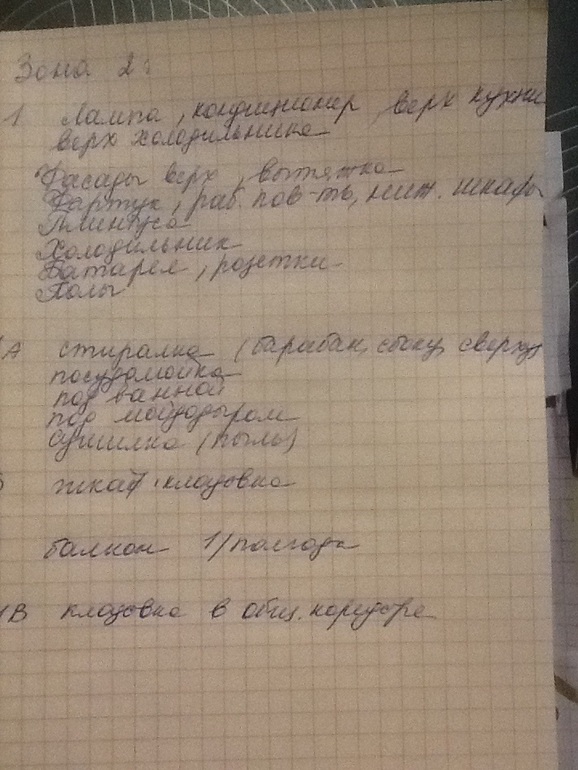 Зона 2:
1 Лампа, кондиционер, верх кухни
верх холодильника
Фасады верх, вытяжка
Фартук, раб. пов-ть, ниж. шкафы
Плинтуса
Холодильник
Батарея, розетки
Полы
А стиралка (барабан, сбоку, сверху)
посудомойка
под ванной
под мойдодыром
сушилка (пыль)
шкаф, кладовка
балкон 1/полгода
1В кладовка в общ. коридоре